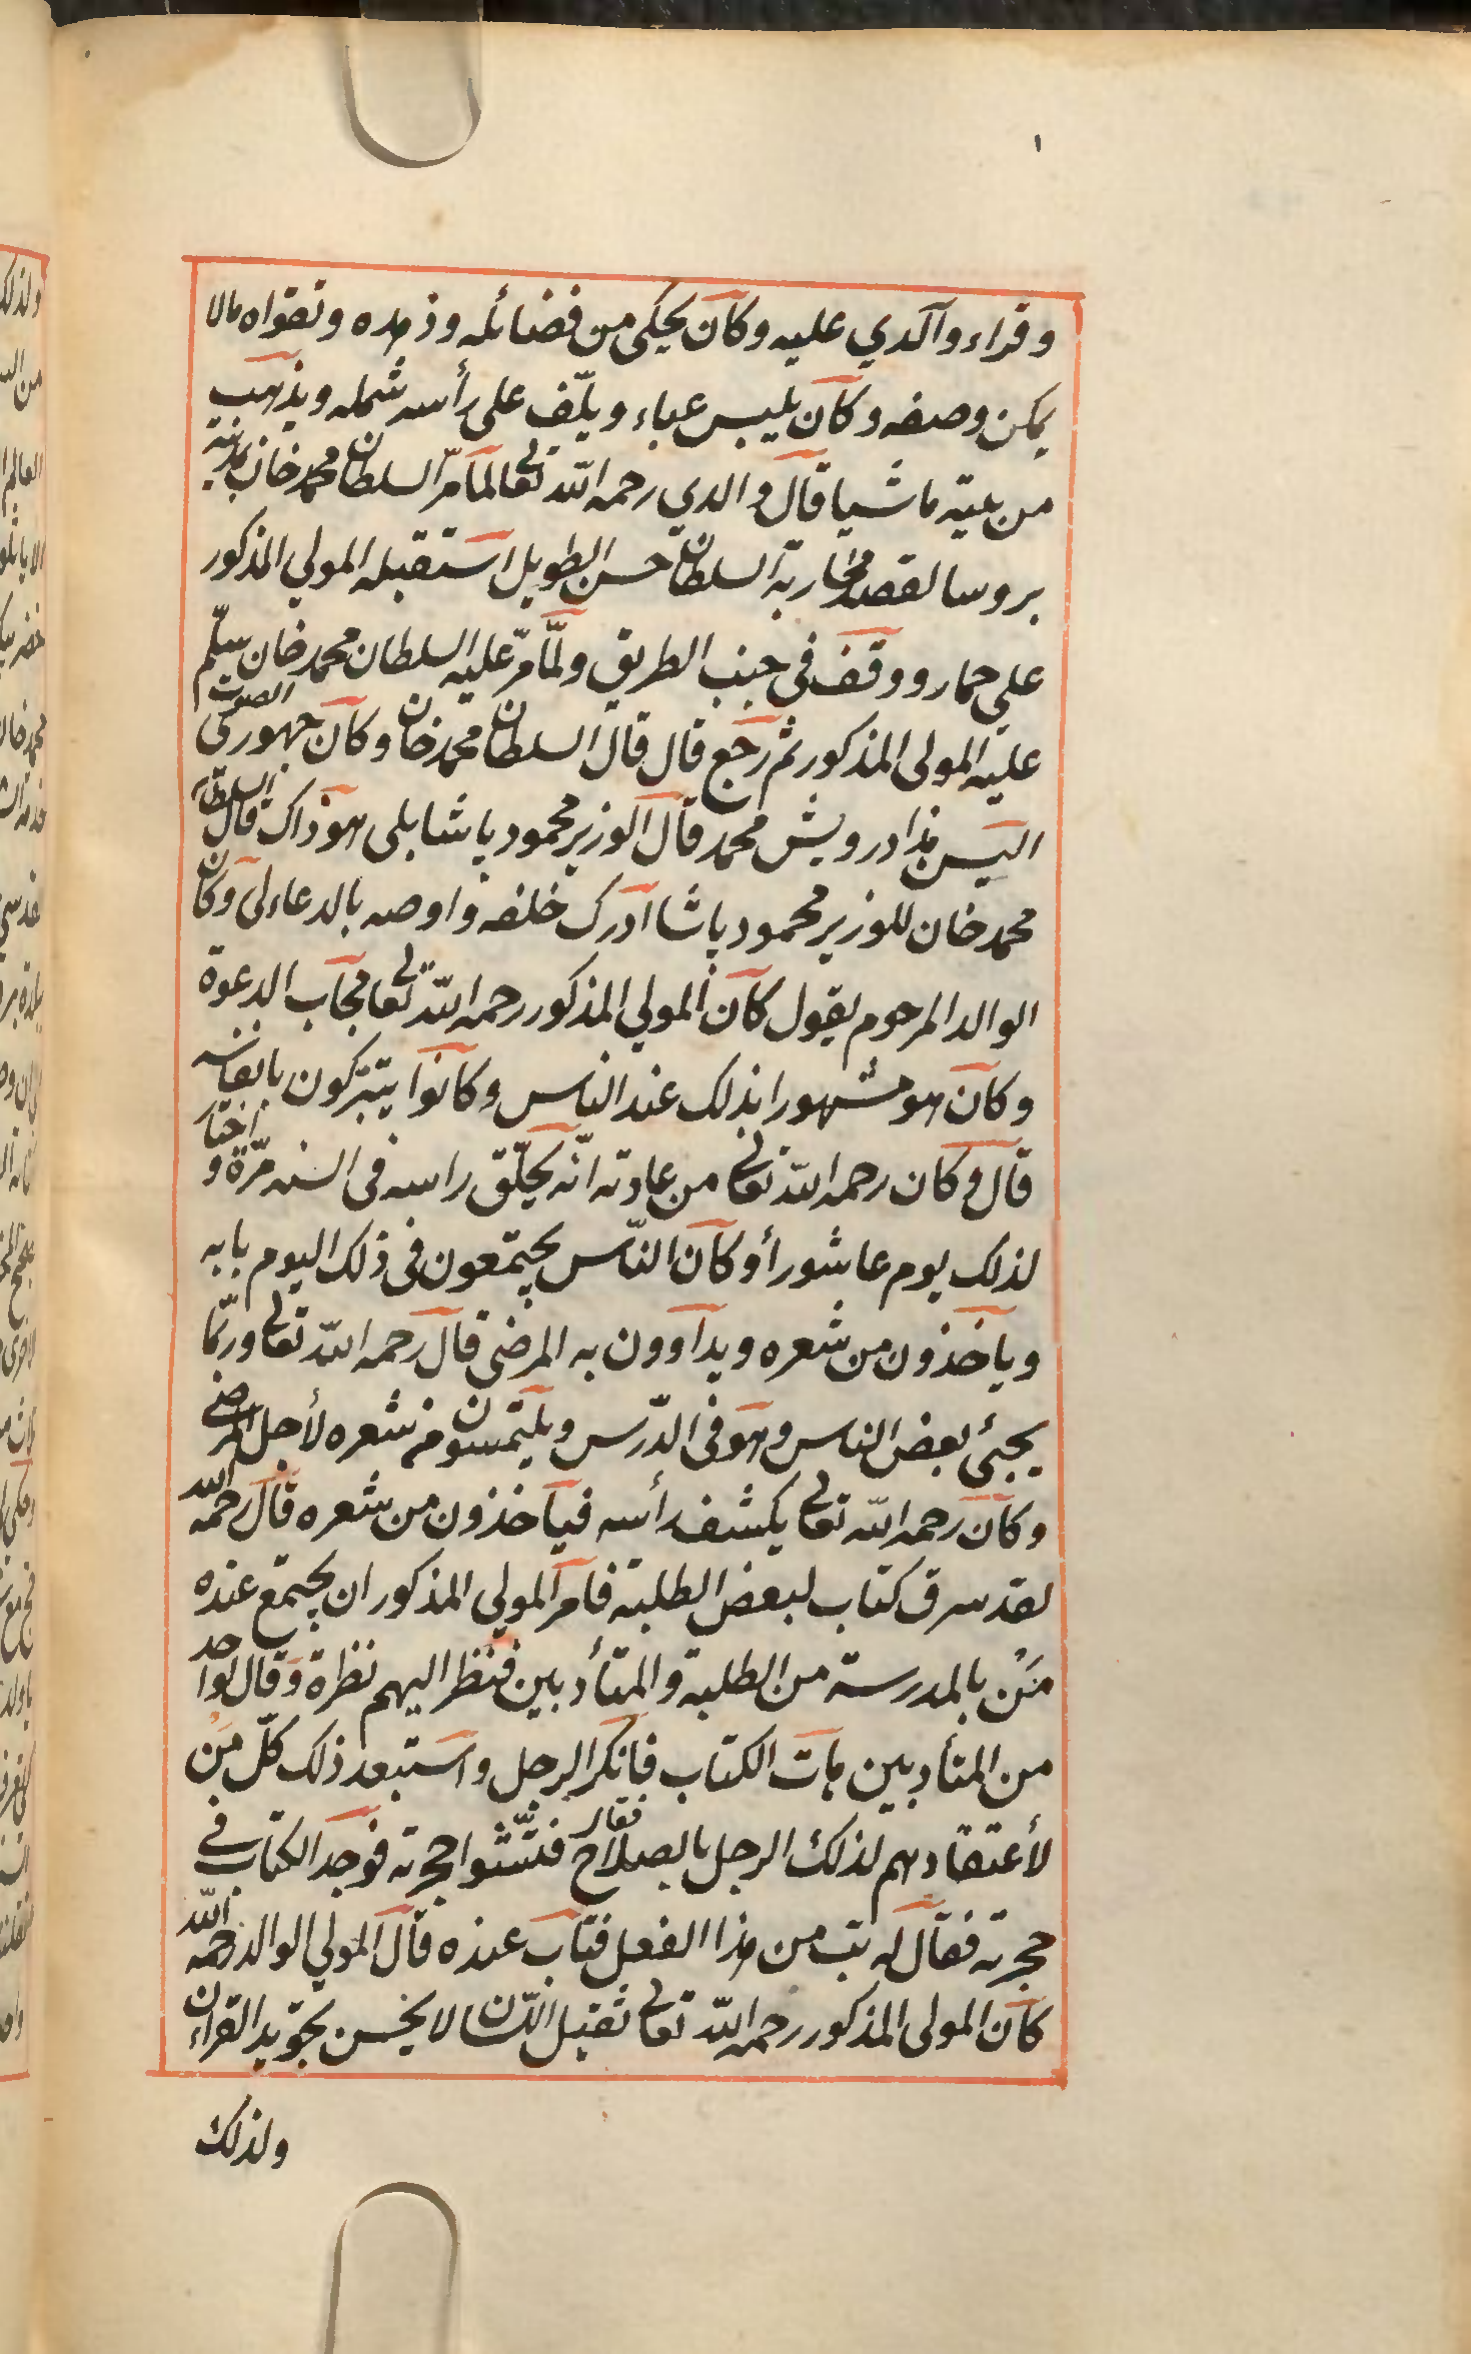 ١
وقراء والدي عليه وكان يحكى من فضائله وزهده وتقواه مالا
يمكن وصفه وكان يلبس عباء ويلف على رأسه شمله ويذهب
من بيته ماشيا قال والدي رحمه الله تعالى لما مرّ السلطان محمد خان بمدينة
بروسا لقصد محاربة السلطان حسن الطويل استقبله المولي المذكور
علي حمار ووقف في جنب الطريق ولمّا مرّ عليه السلطان محمد خان سلّم
عليه المولى المذكور ثم رجع قال قال السلطان محمد خان وكان جهوري الصوت
اليس هذا درويش محمد قال الوزير محمود پاشا بلى هو ذاك قال السلطان
محمد خان للوزير محمود پاشا ادرك خلفه واوصه بالدعاء لى وكان
الوالد المرحوم يقول كان المولي المذكور رحمه الله تعالى مجاب الدعوة
وكان هو مشهورا بذلك عند الناس وكانوا يتبرّكون بانفاسه
قال وكان رحمه الله تعالى من عادته انّه يحلّق راسه فى السنه مرّة و اختار
لذلك يوم عاشورأ وكان النّاس يجتمعون فى ذلك اليوم بابه
وياخذون من شعره ويداوون به المرضى قال رحمه الله تعالى وربّما
يجئ بعض الناس وهو فى الدّرس ويلتمسون من شعره لأجل المرضى
وكان رحمه الله تعالى يكشف رأسه فياخذون من شعره قال رحمه الله
لقد سرق كتاب لبعض الطلبة فامر المولي المذكور ان يجتمع عنده
مَنْ بالمدرسة من الطلبة والمتأدبين فنظر اليهم نظرة وقال لواحد
من المتأدبين هات الكتاب فانكر الرجل واستبعد ذلك كلّ مَن
لأعتقادهم لذلك الرجل بالصلاح فقال فتّشوا حجرته فوجد الكتاب في
حجرته فقال له تب من هذا الفعل فتاب عنده قال المولي الوالد رحمه الله
كان المولى المذكور رحمه الله تعالى ثقيل اللّسان لا يحسن تجويد القراءن
ولذلك